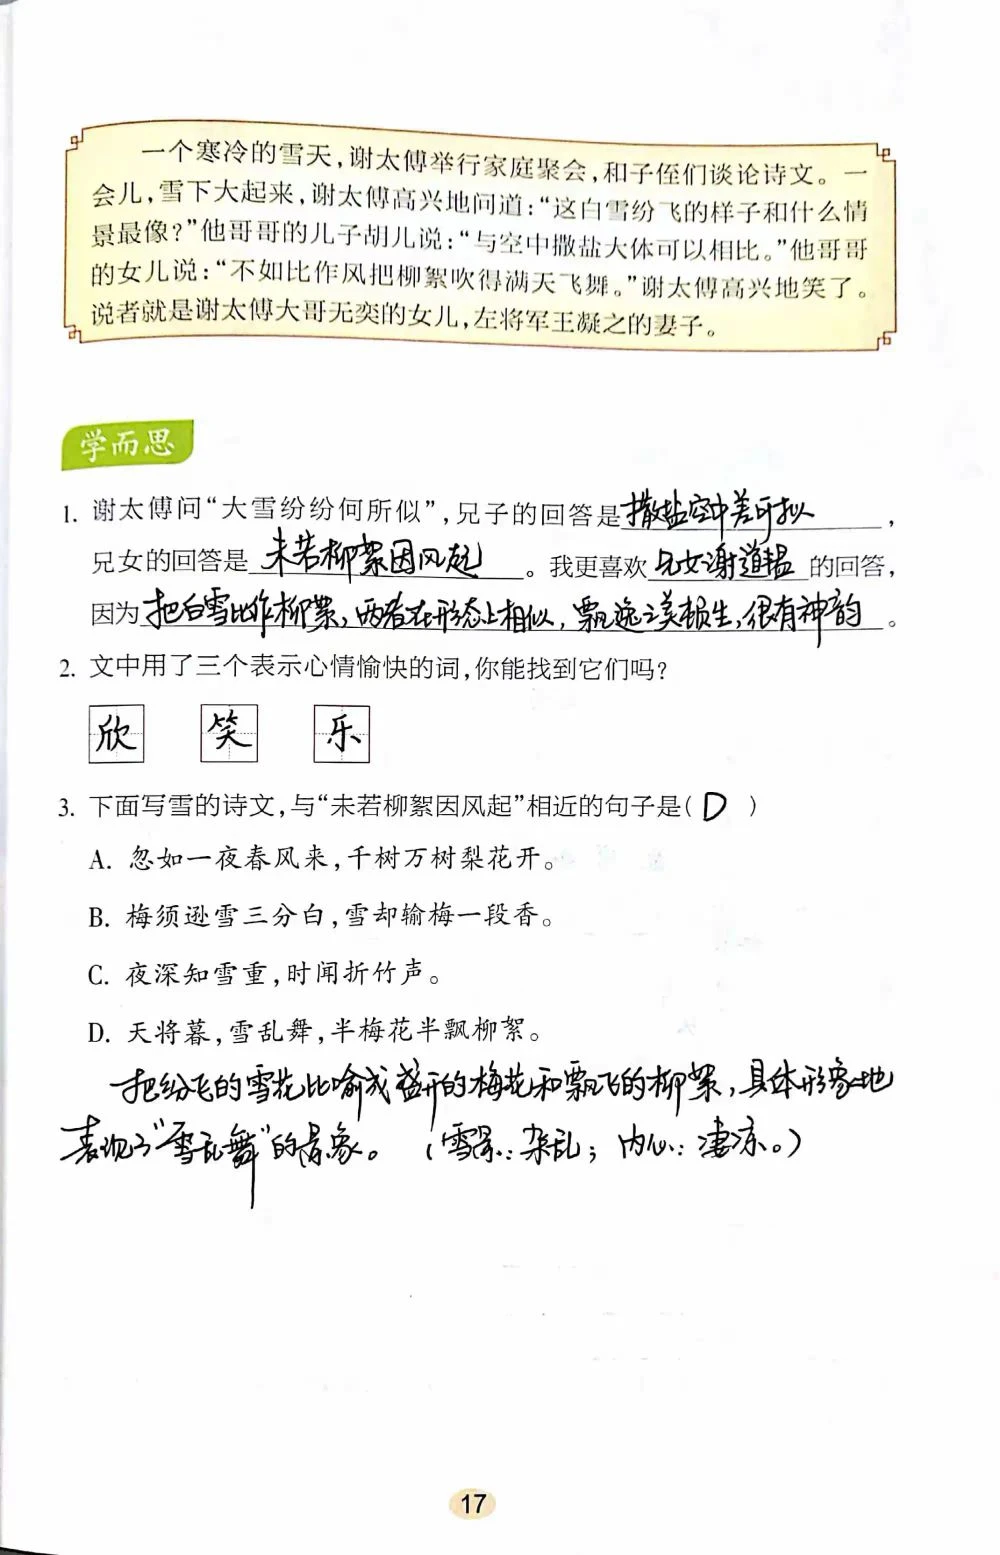 一个寒冷的雪天，谢太傅举行家庭聚会，和子侄们谈论诗文。一
会儿，雪下大起来，谢太傅高兴地问道：“这白雪纷飞的样子和什么情
景最像？”他哥哥的儿子胡儿说：“与空中撒盐大体可以相比。”他哥哥
的女儿说：“不如比作风把柳絮吹得满天飞舞。”谢太傅高兴地笑了。
说者就是谢太傅大哥无奕的女儿，左将军王凝之的妻子。
学而思
1. 谢太傅问“大雪纷纷何所似”，兄子的回答是撒盐空中差可拟，
兄女的回答是未若柳絮因风起。我更喜欢兄女谢道韫的回答，
因为把白雪比作柳絮，两者在形态上相似，飘逸之美顿生，很有神韵。
2. 文中用了三个表示心情愉快的词，你能找到它们吗？
欣 笑 乐
3. 下面写雪的诗文，与“未若柳絮因风起”相近的句子是（D）
A. 忽如一夜春风来，千树万树梨花开。
B. 梅须逊雪三分白，雪却输梅一段香。
C. 夜深知雪重，时闻折竹声。
D. 天将暮，雪乱舞，半梅花半飘柳絮。
把纷飞的雪花比喻成盛开的梅花和飘飞的柳絮，具体形象地
表现了“雪乱舞”的景象。（雪景：杂乱；内心：凄凉。）
17